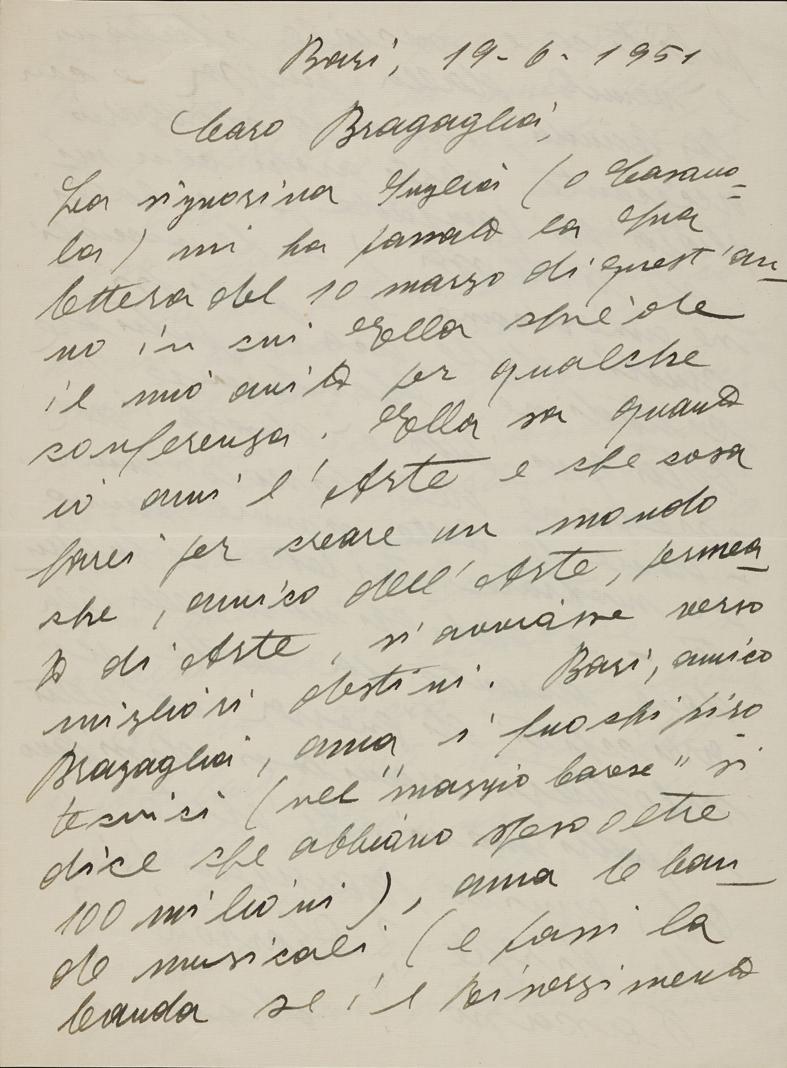 Bari, 19-6-1951
Caro Bragaglia,
La signorina Puglia (o Casano=
la) mi ha passato la Sua
lettera del 10 marzo di quest'an_
no in cui Ella chiede
il mio aiuto per qualche
conferenza. Ella sa quanto
io ami l'Arte e che cosa
farei per creare un mondo
che, amico dell'Arte, permea_
to di Arte, si avviasse verso
migliori destini. Bari, amico
Bragaglia, ama i fuochi piro
tecnici (nel "maggio barese" si
dice che abbiano speso oltre
100 milioni), ama le ban_
de musicali (e passi la
banda se il